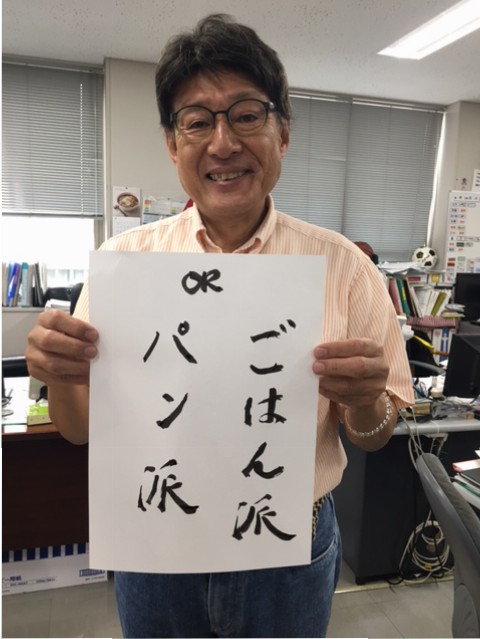 OR
ごはん派
パン派